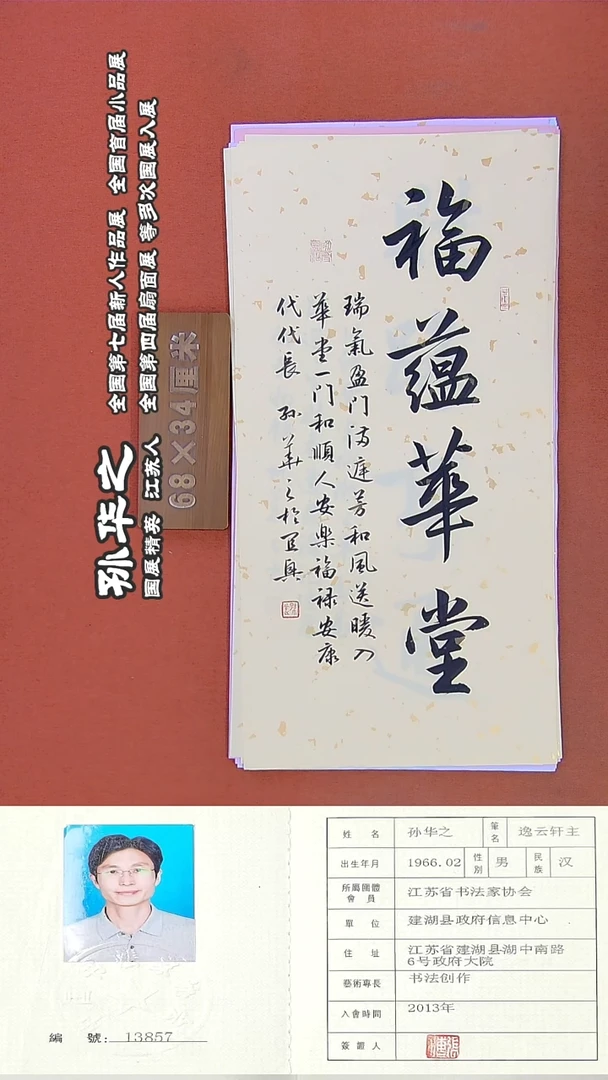 孙华之
国展精英 江苏人
全国第七届新人作品展 全国首届小品展
全国第四届扇面展 等多次国展入展
68×34厘米
福蕴華堂
瑞氣盈门满庭芳和風送暖入
華堂一门和順人安樂福禄安康
代代長 孙華之於
姓名 孙华之 筆名 逸云轩主
出生年月 1966.02 性别 男 民族 汉
所屬團體會員 江苏省书法家协会
單位 建湖县政府信息中心
住址 江苏省建湖县湖中南路
6号政府大院
藝術專長 书法创作
入會時間 2013年
簽證人
編號: 13857